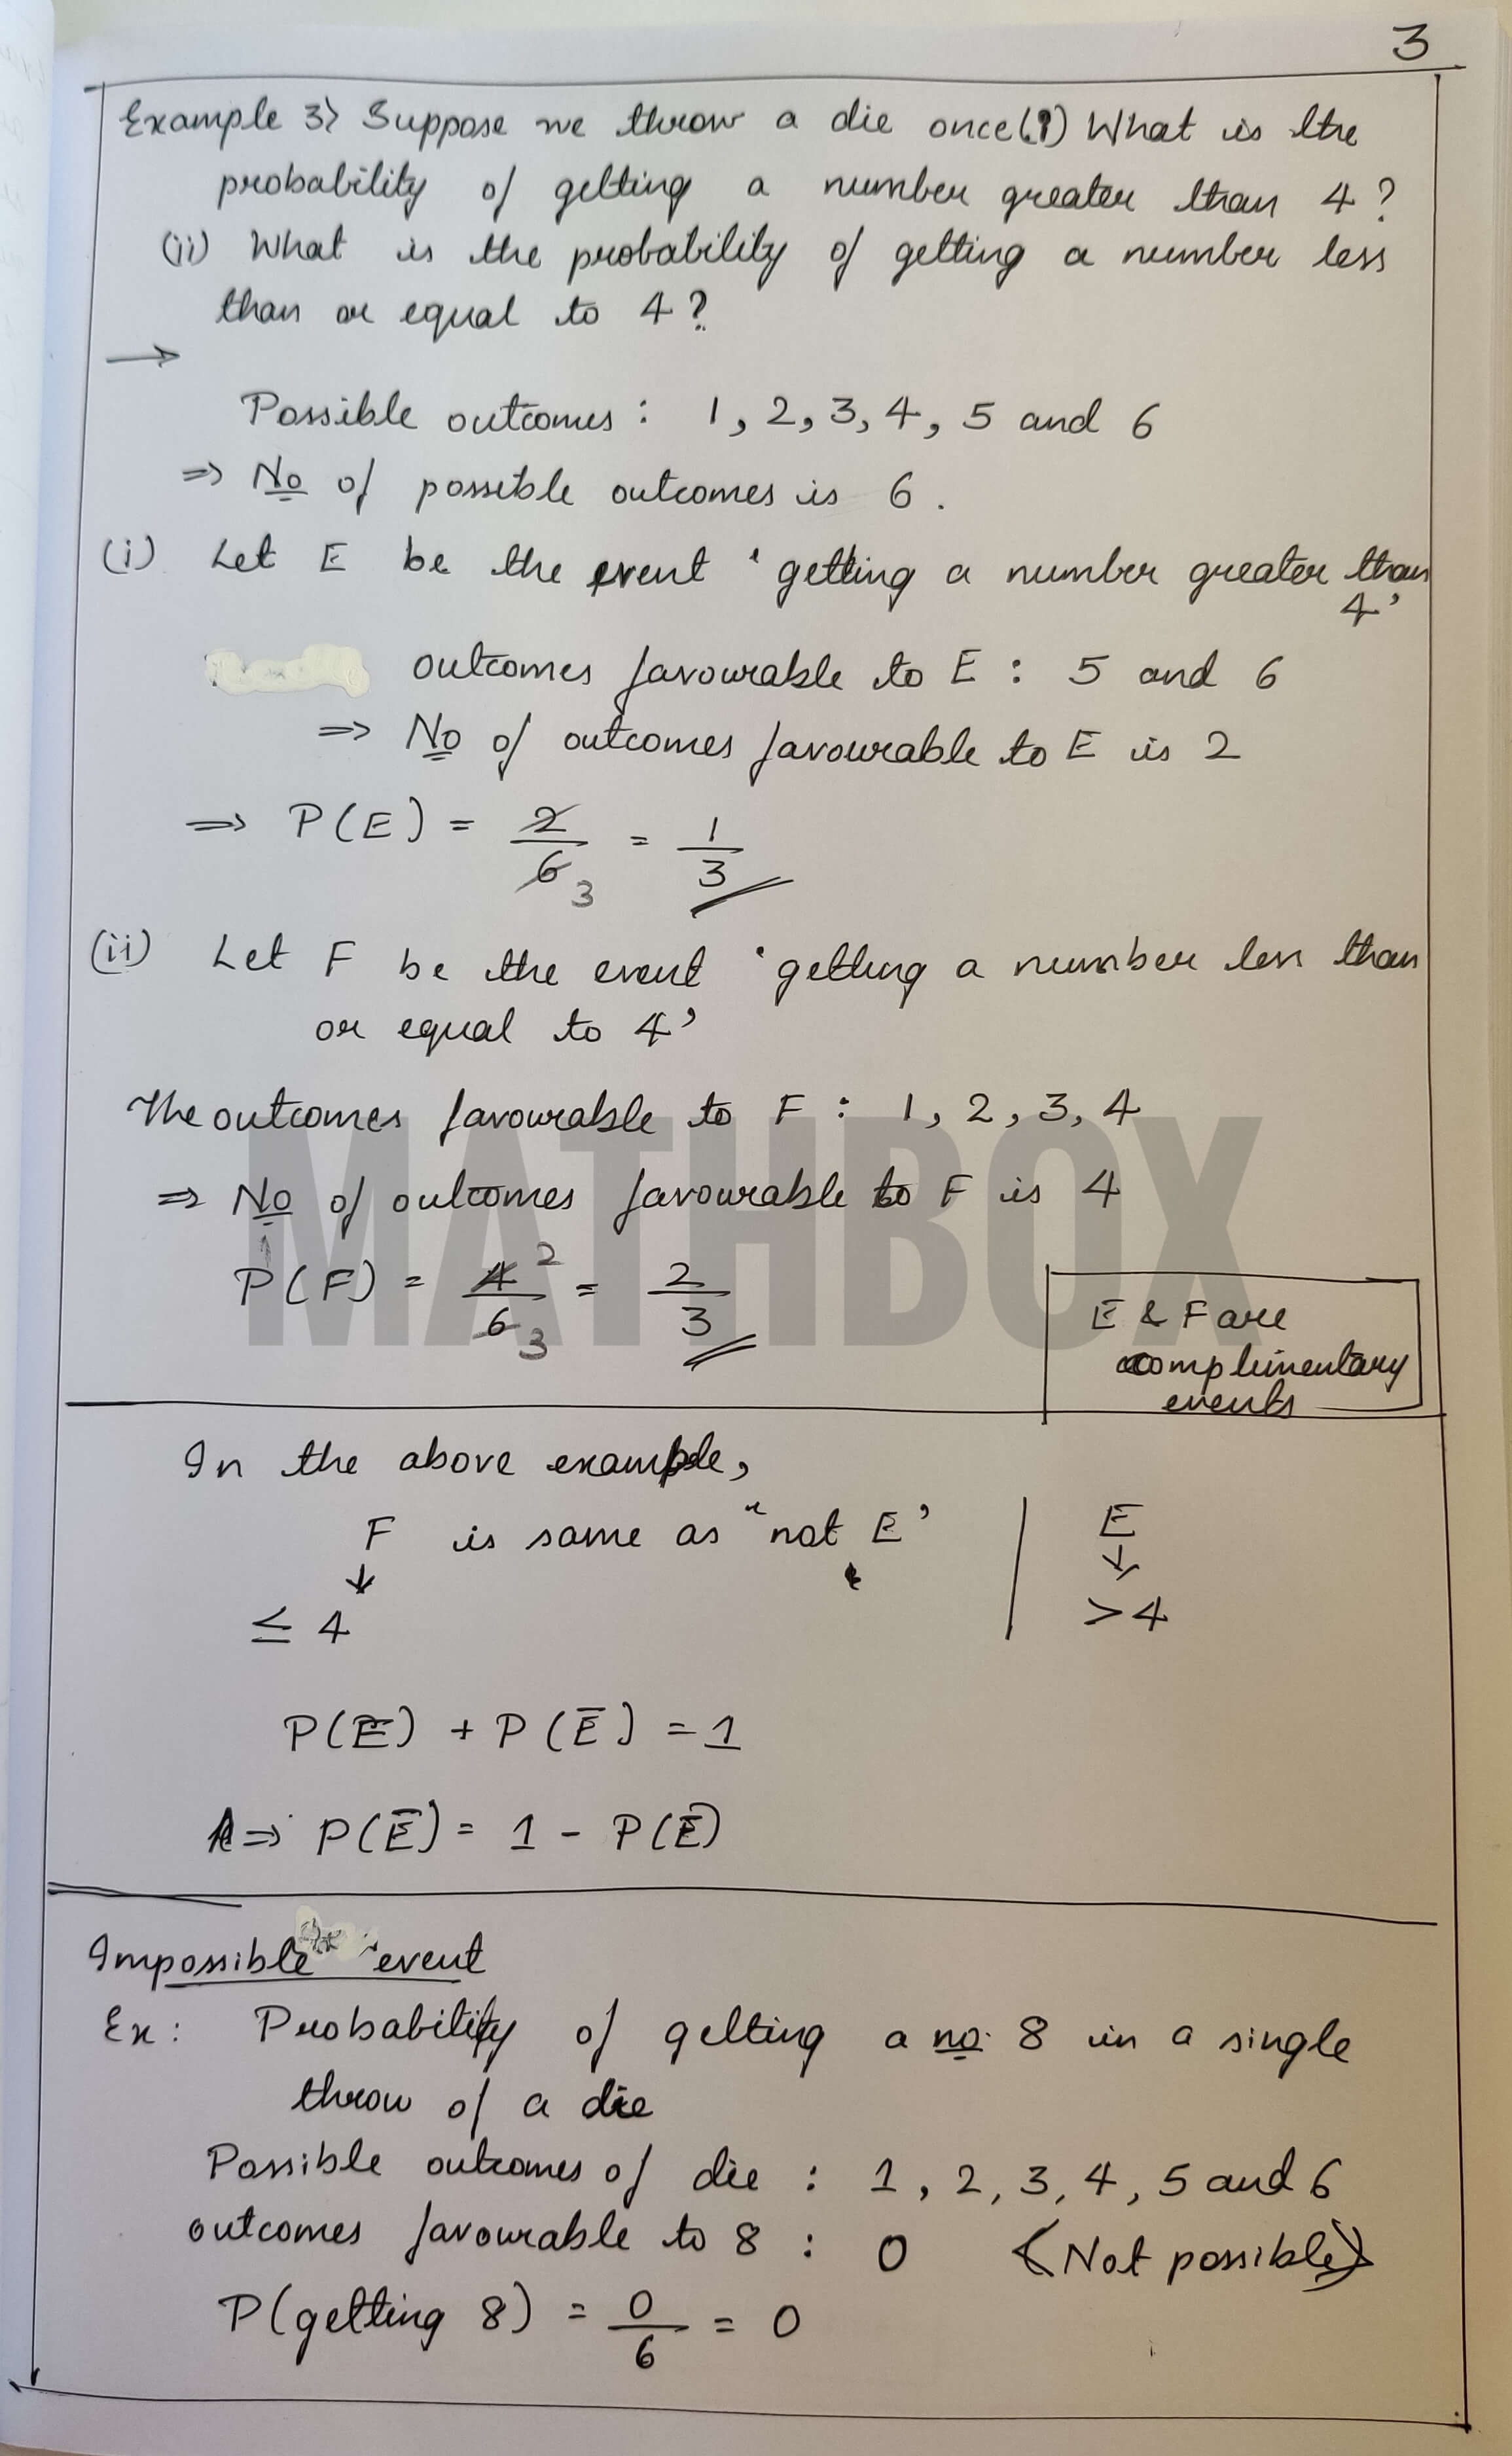 3
Example 3> Suppose we throw a die once(i) What is the
probability of getting a number greater than 4?
(ii) What is the probability of getting a number less
than or equal to 4?
→
Possible outcomes : 1, 2, 3, 4, 5 and 6
⇒ No of possible outcomes is 6.
(i) Let E be the event 'getting a number greater than
4'
outcomes favourable to E : 5 and 6
⇒ No of outcomes favourable to E is 2
⇒ P(E) = 2/6 3 = 1/3
(ii) Let F be the event 'getting a number less than
or equal to 4'
The outcomes favourable to F : 1, 2, 3, 4
⇒ No of outcomes favourable to F is 4
P(F) = 4 2/6 3 = 2/3
MATHBOX
E & F are
complimentary
events
In the above example,
F is same as "not E'
↓
≤ 4
E
↓
>4
P(E) + P(Ē) = 1
⇒ P(Ē) = 1 - P(Ē)
Impossible event
Ex: Probability of getting a no. 8 in a single
throw of a die
Possible outcomes of die : 1, 2, 3, 4, 5 and 6
outcomes favourable to 8 : 0 (Not possible)
P(getting 8) = 0/6 = 0